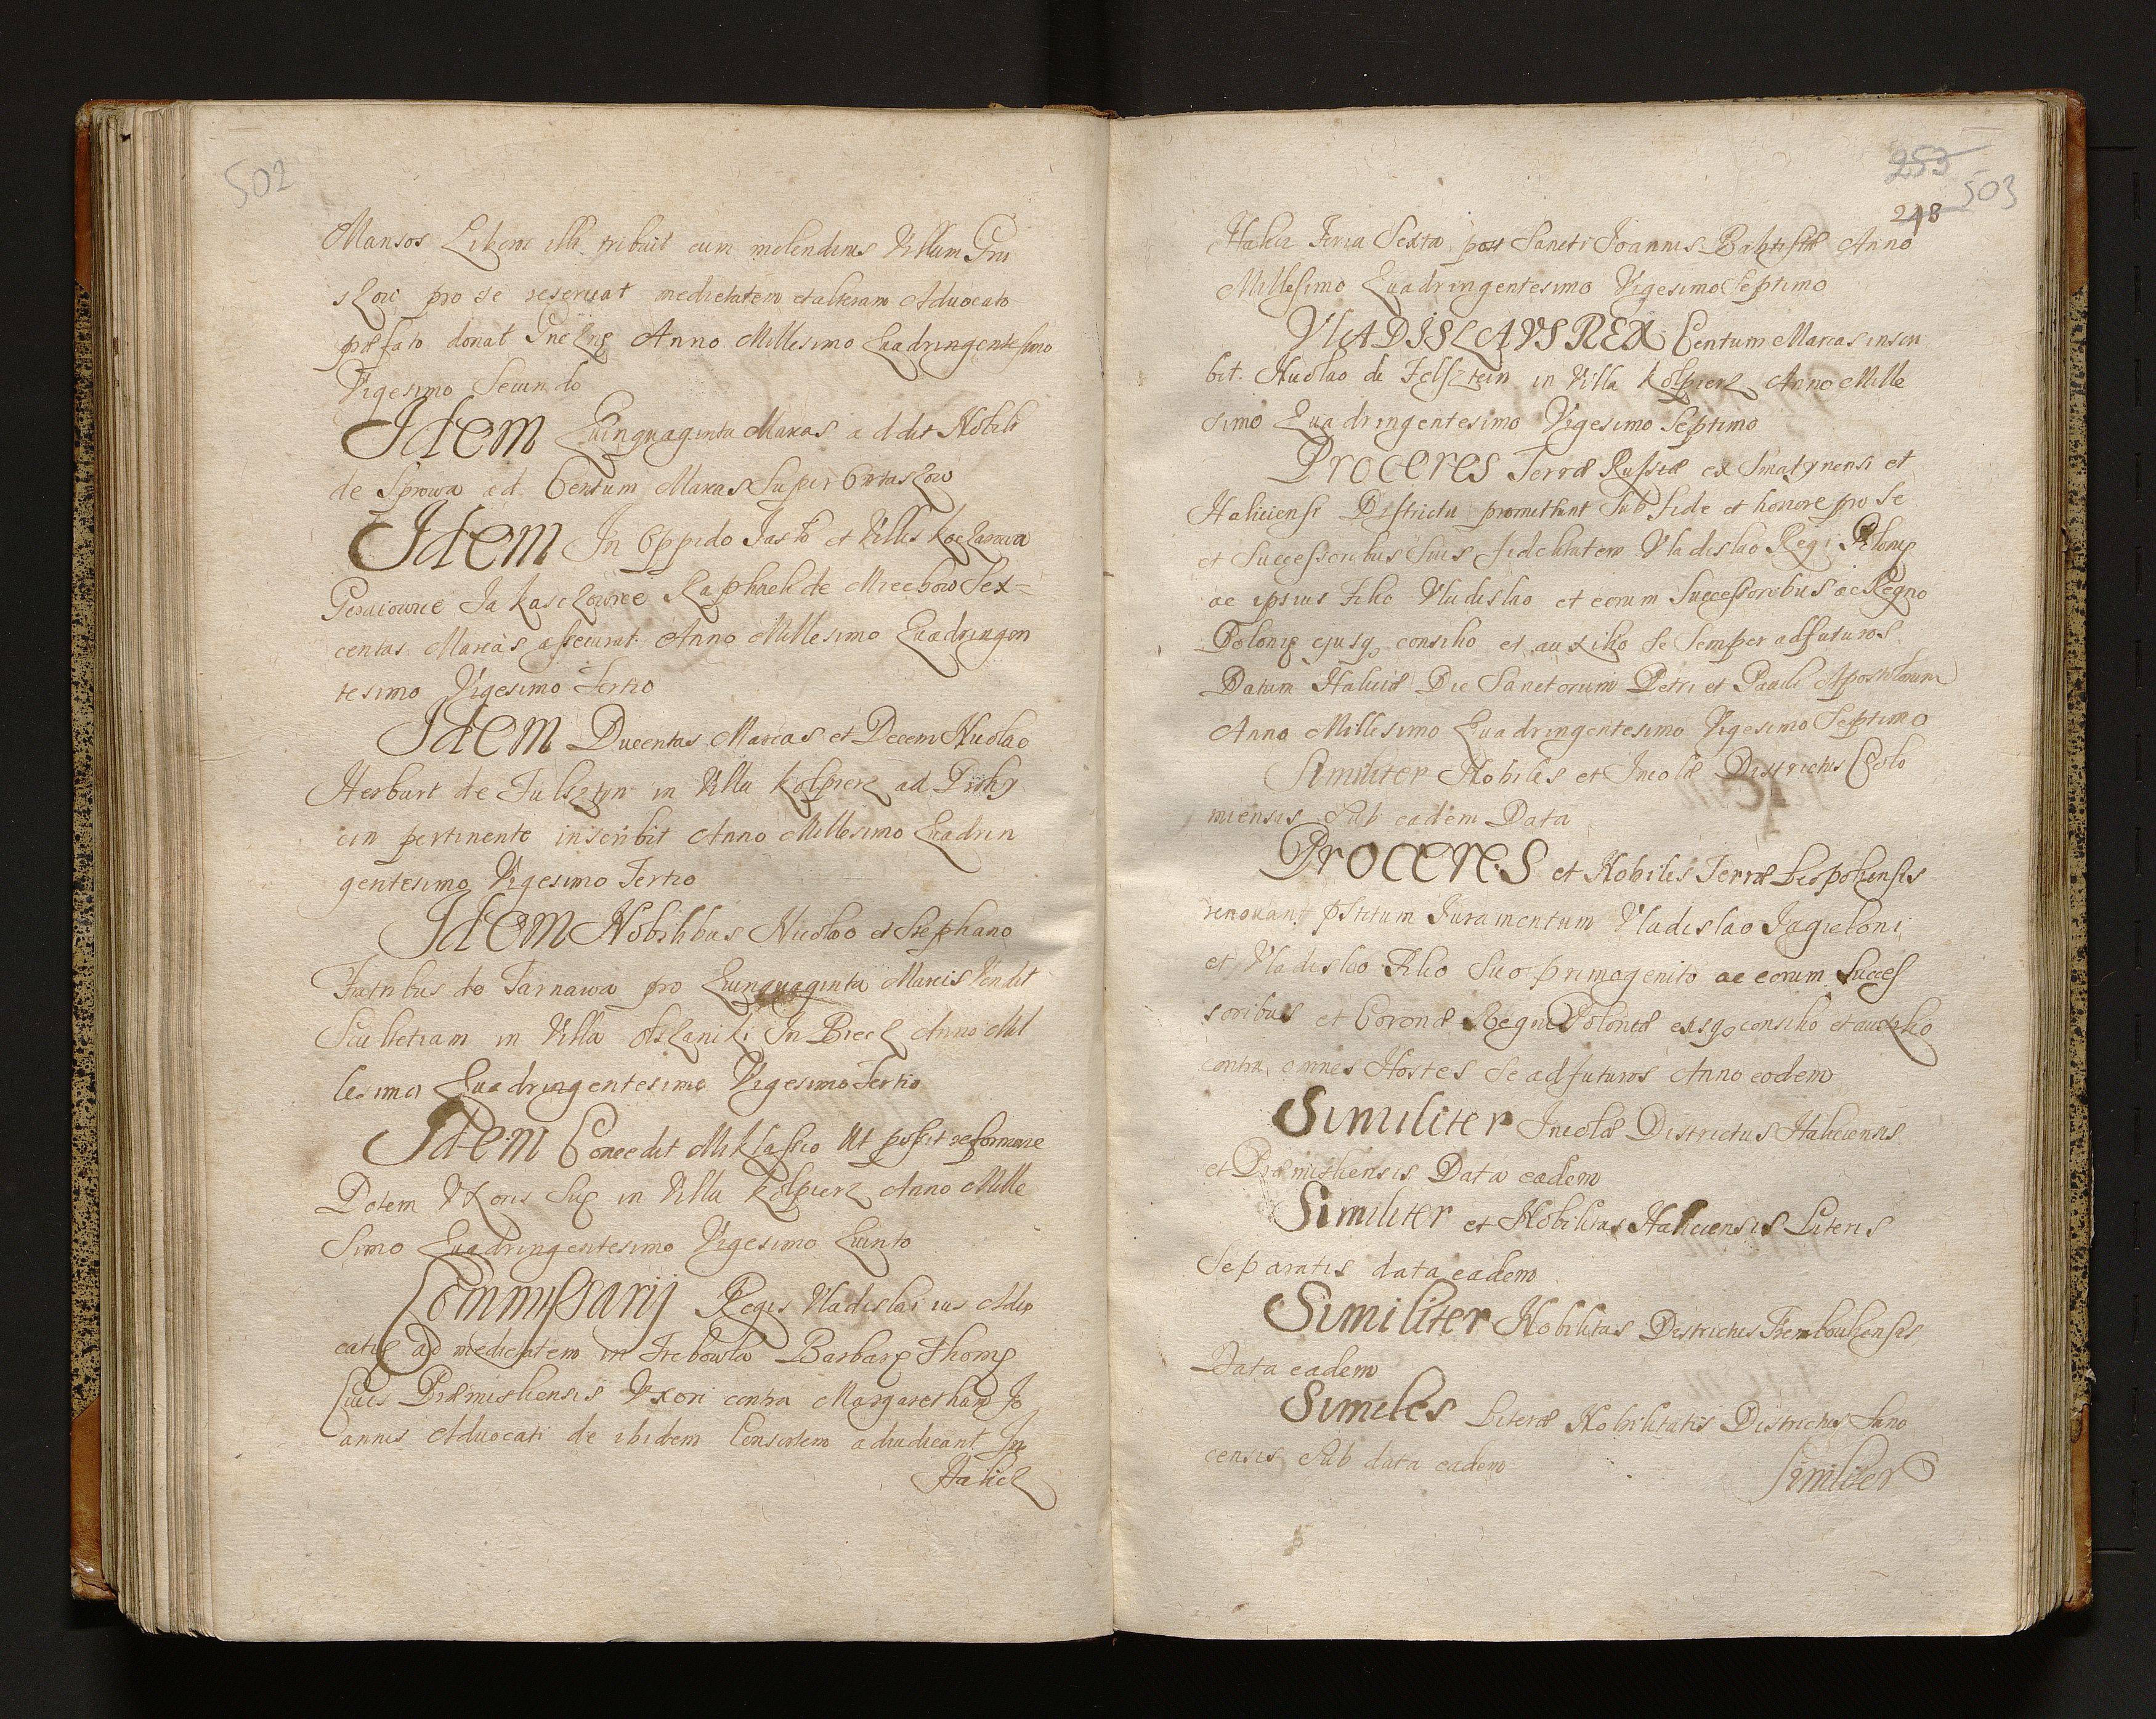 502
Mansos Libere illi tribuit cum molendinis Villam Gru
szow pro se reseruat medietatem et alteram Aduocato
præfato donat Gnezne Anno Millesimo Quadringentesimo
Vigesimo Secundo
Idem Quinquaginta Marcas addit Nobili
de Sprowa ad Centum Marcas Super
Idem In Oppido Jasło et Villis
Raphaeli de Miechow Sex=
centas Marcas assecurat Anno Millesimo Quadringen
tesimo Vigesimo Tertio
Idem Ducentas Marcas et Decem Nicolao
Herburt de Fulsztyn in Villa Kolpiers ad
pertinente inscribit Anno Millesimo Quadrin
gentesimo Vigesimo Tertio
Idem Nobilibus Nicolao et Stephano
Fratribus de Tarnawa pro Quinquaginta Marcis Vendit
Scultetiam in Villa Olszaniki In Biecz Anno Mil
lesimo Quadringentesimo Vigesimo Tertio
Idem Concedit Miklassio Ut possit reformare
Dotem Vxoris Suę in Villa Kolpierz Anno Mille
Simo Quadringentesimo Vigesimo Quinto
Commissarij Regis Vladislai ius Aduo
catię ad medietatem in Trebowla Barbarę Thomę
Ciuis Præmisliensis Vxori contra Margaretham Jo
annis Aduocati de ibidem Consortem adiudicant In
Halicz
253
503
248
Halicz Feria Sexta post Sancti Joannis Baptistæ Anno
Millesimo Quadringentesimo Vigesimo Septimo
VLADISLAVS REX Centum Marcas inscri
bit Nicolao de Felsztein in Villa Kolpierz Anno Mille
simo Quadringentesimo Vigesimo Septimo
Proceres Terræ Russiæ ex Smatynensi et
Haliciensi Districtu promittunt Sub Fide et honore pro Se
et Successoribus Suis fidelitatem Vladislao Regi Polonię
ac ipsius Filio Vladislao et eorum Successoribus ac Regno
Polonię ejusq consilio et auxilio Se Semper adfuturos
Datum Haliciæ Die Sanctorum Petri et Pauli Apostolorum
Anno Millesimo Quadringentesimo Vigesimo Septimo
Similiter Nobiles et Incolæ Districtus Colo
miensis Sub eadem Data
Proceres et Nobiles Terræ Leopoliensis
renovant pstitum Juramentum Vladislao Jagieloni
et Vladislao Filio Suo primogenito ac eorum Succes
soribus et Coronæ Regni Poloniæ eiusq consilio et auxilio
contra omnes Hostes Se adfuturos Anno eodem
Similiter Incolæ Districtus Haliciensis
et Præmisliensis Data eadem
Similiter et Nobilitas Haliciensis Literis
Separatis data eadem
Similiter Nobilitas Districtus Trembouliensis
Data eadem
Similes Literæ Nobilitatis Districtus Sano
censis Sub data eadem
Similiter